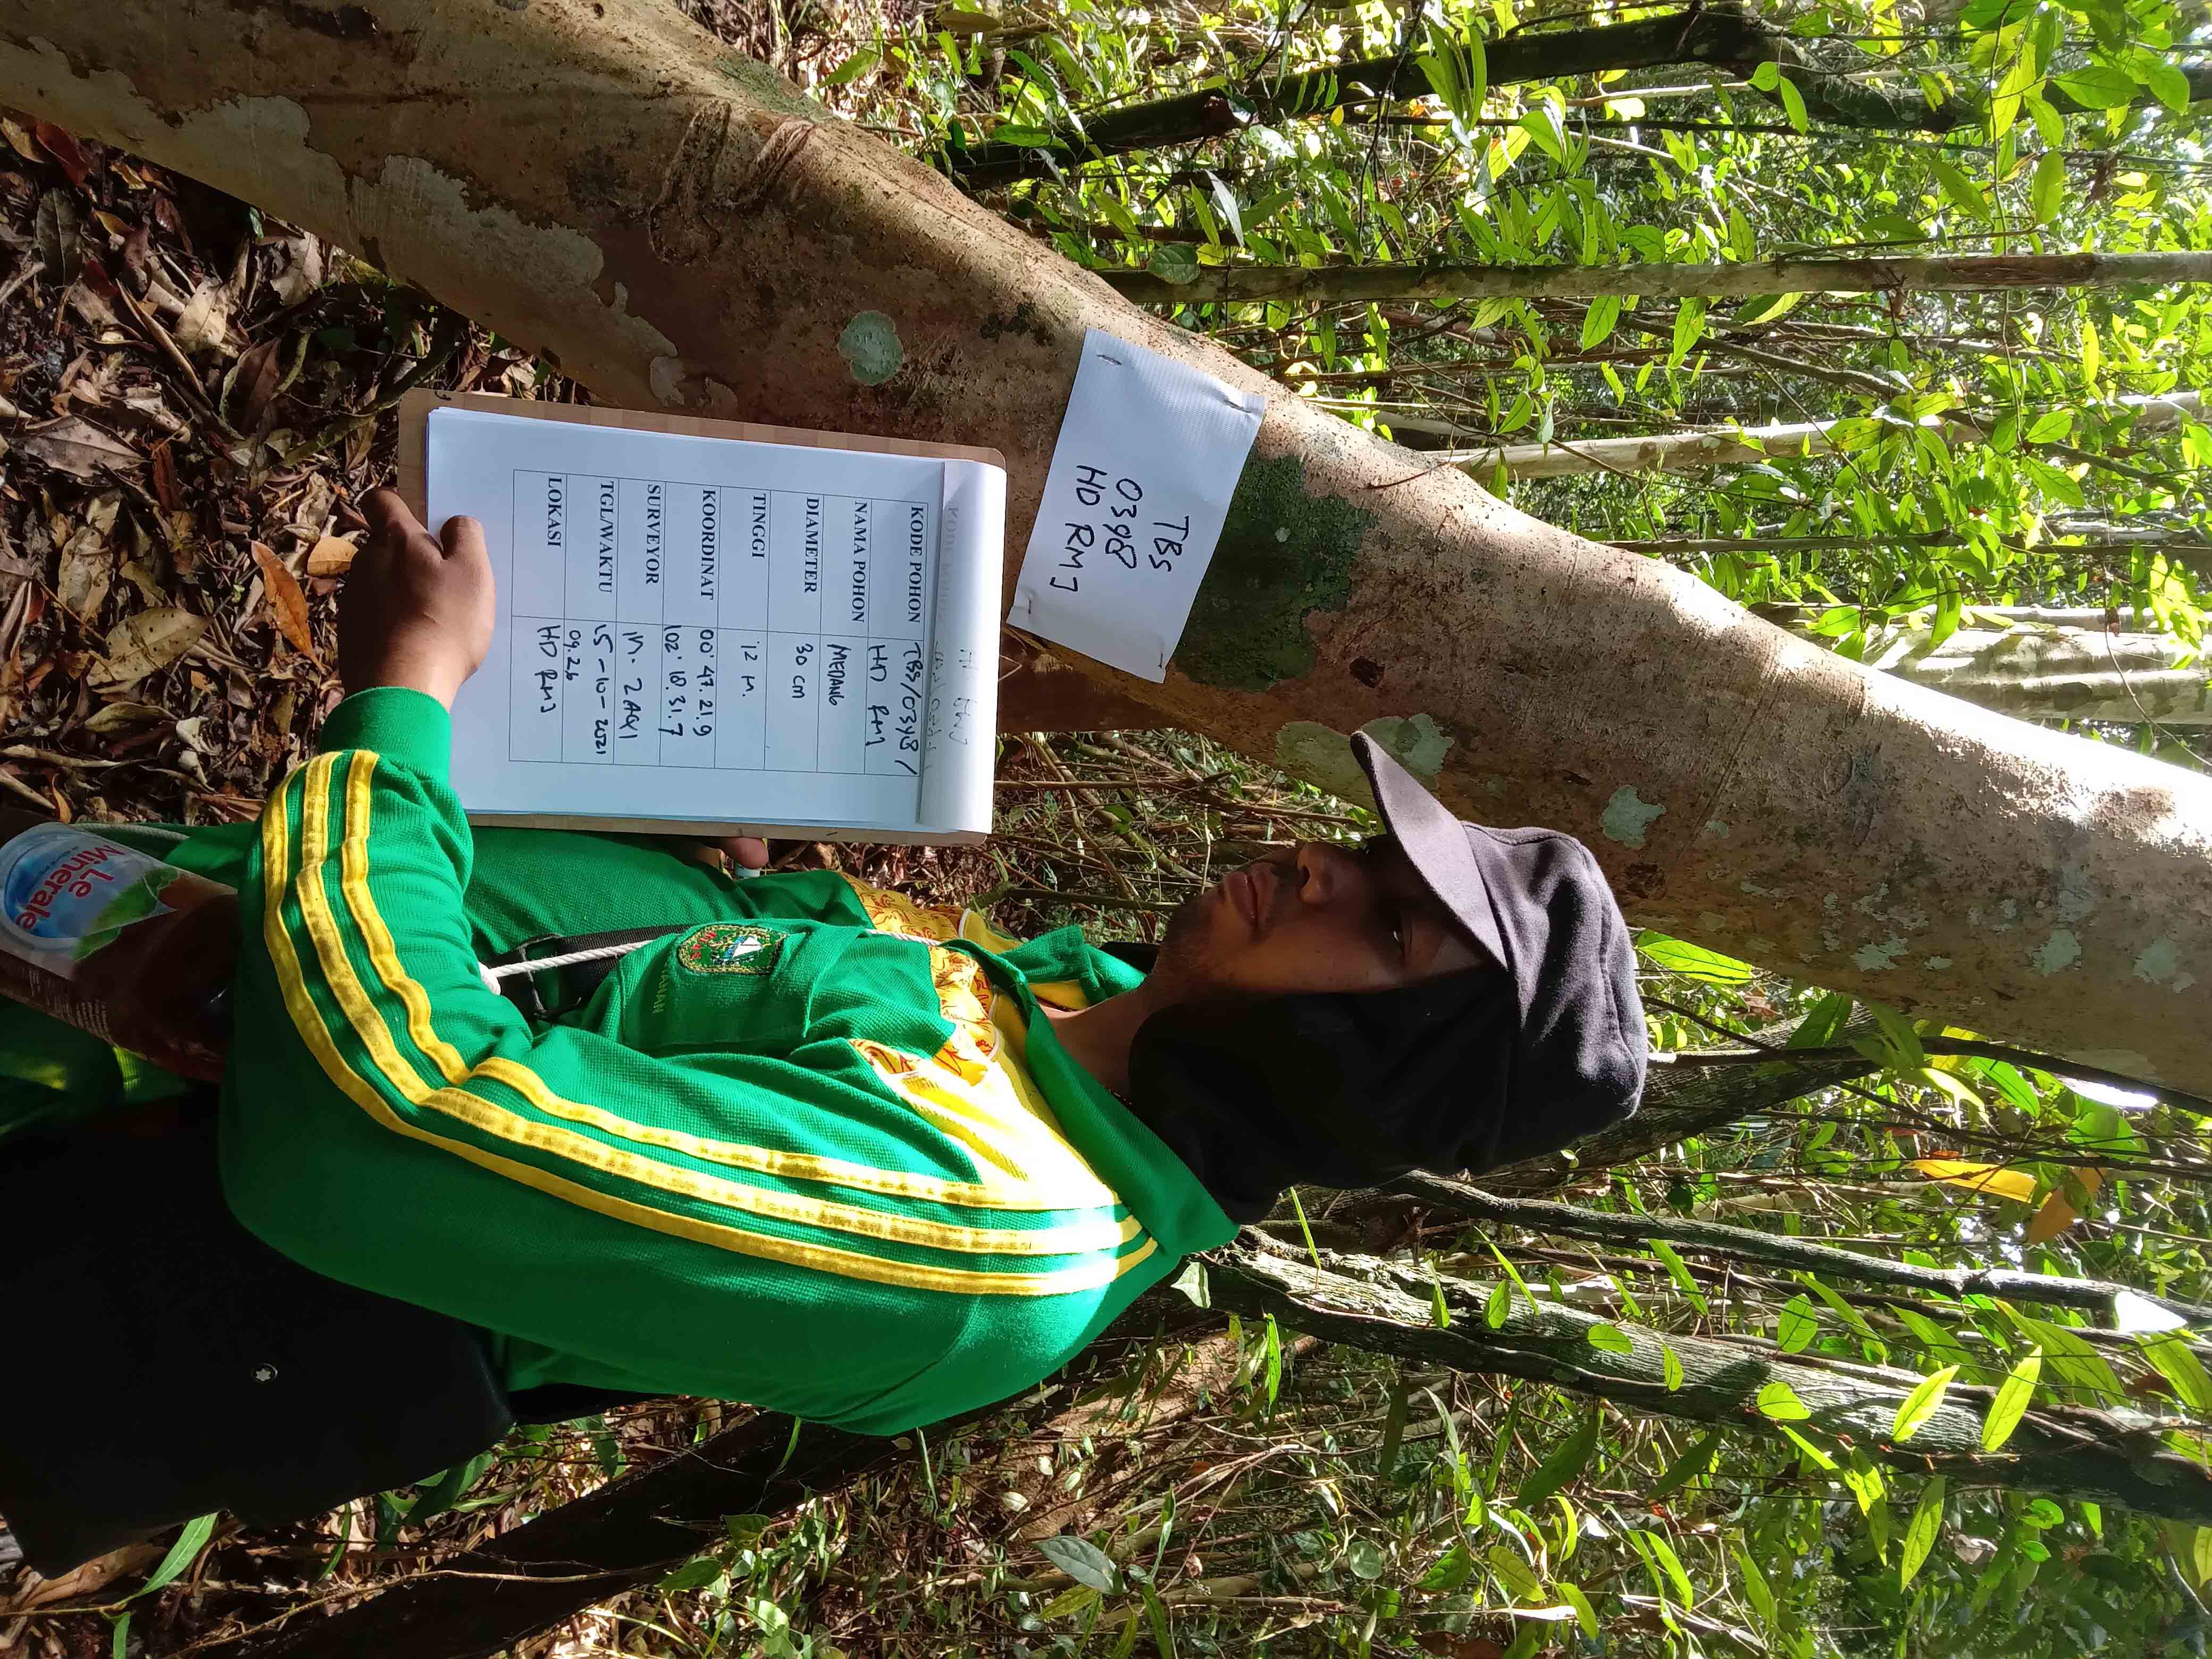 TBS
0398
HD RMJ
KODE POHON TBS/0398/
HD RMJ
NAMA POHON MEDANG
DIAMETER 30 cm
TINGGI 12 M.
KOORDINAT 00' 47. 21.9
102' 18. 31. 7
SURVEYOR M. ZAQI
TGL/WAKTU 15-10-2021
09.26
LOKASI HD RMJ
Le
Minerale